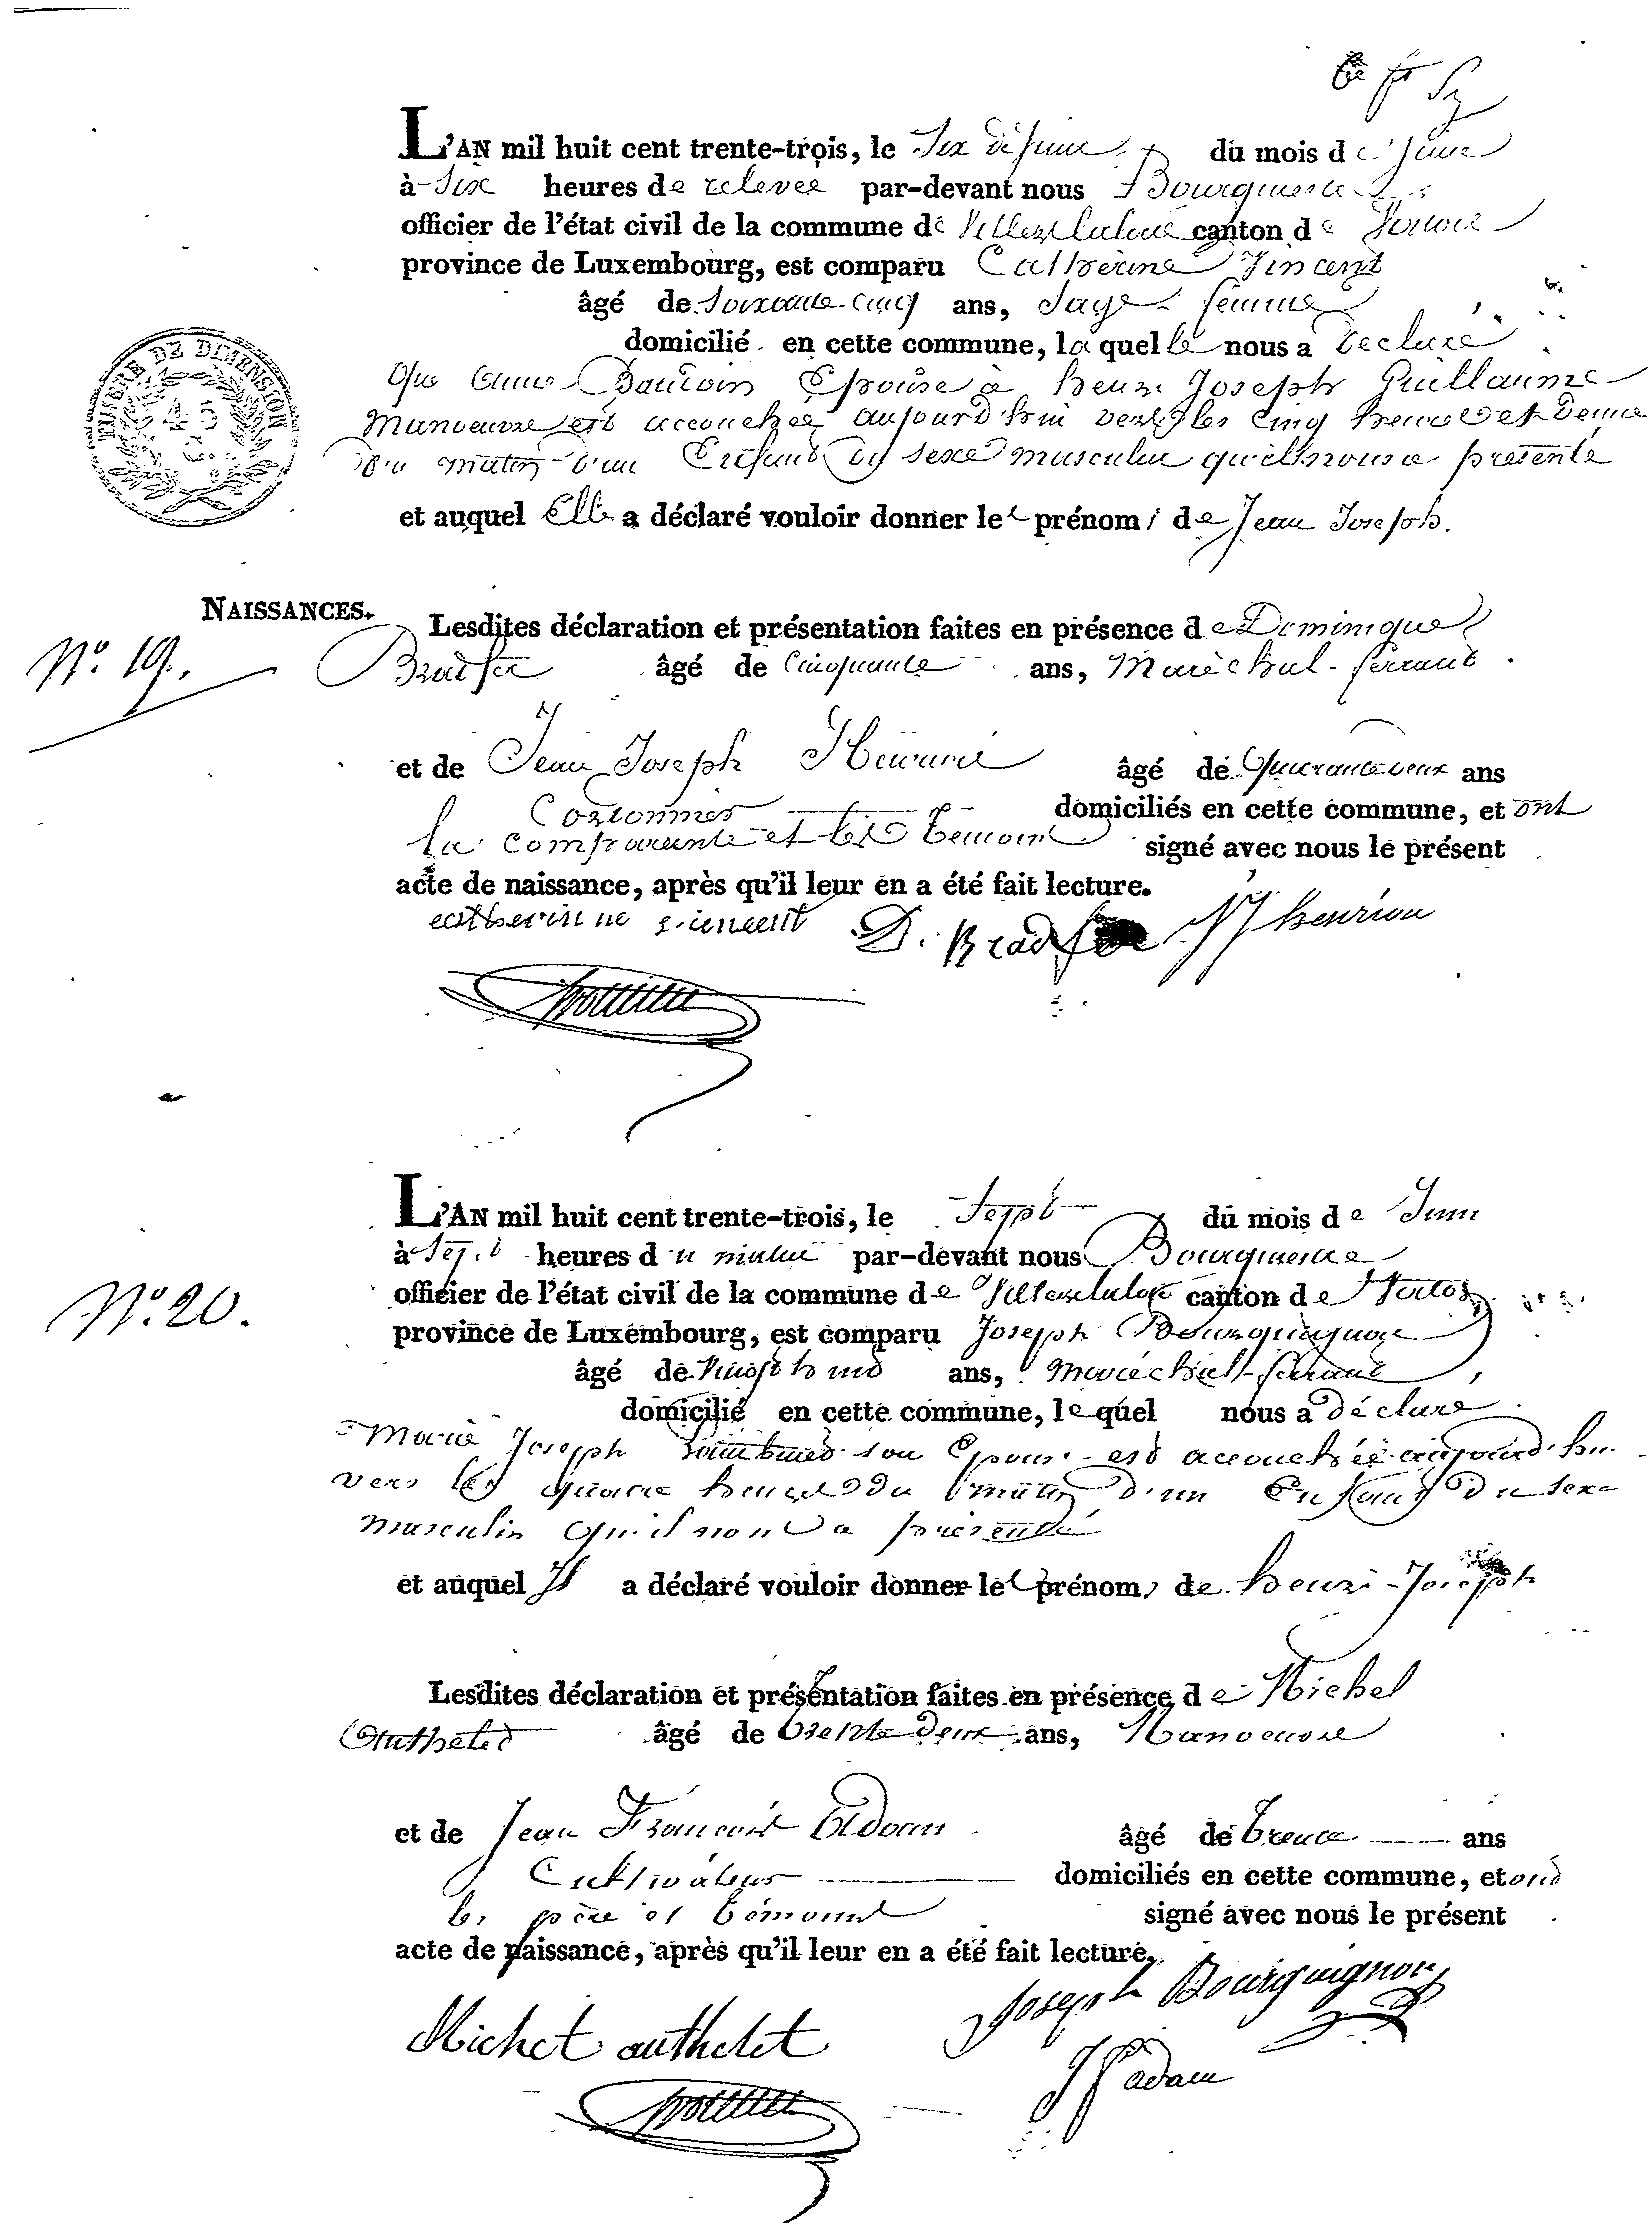 L'AN mil huit cent trente-trois, le Six de juin du mois de juin
à Six heures de relevée par-devant nous
officier de l'état civil de la commune de canton de
province de Luxembourg, est comparu Catherine Vincent
âgé de Soixante cinq ans, Sage femme
domicilié en cette commune, la quelle nous a declaré
que Epouse à henri Joseph Guillaume
manoeuvre est accouchée aujourd'hui vers les cinq heures et demie
du matin d'un Enfant du sexe musculin qu'ell nous a presenté
et auquel Elle a déclaré vouloir donner les prénoms de Jean Joseph.
MISÈRE DE DIMENSION
45
C.
NAISSANCES.
N.º 19.
Lesdites déclaration et présentation faites en présence de Dominique
âgé de Cinquante ans, Maréchal-ferrant
et de Jean Joseph âgé de Quarante deux ans
Cordonnier domiciliés en cette commune, et ont
la comparante et les témoins signé avec nous le présent
acte de naissance, après qu'il leur en a été fait lecture.
D. JJ henrion
N.º 20.
L'AN mil huit cent trente-trois, le Sept du mois de Juin
à Sept heures du matin par-devant nous
officier de l'état civil de la commune de canton de
province de Luxembourg, est comparu Joseph Bourguignon
âgé de ans, maréchal-ferrant
domicilié en cette commune, lequel nous a déclaré
Marie Joseph son Epouse est accouchée aujourd'hui
vers les quatre heures du matin d'un Enfant du sexe
masculin qu'il nous a présenté
et auquel Il a déclaré vouloir donner les prénoms de henri-Joseph
Lesdites déclaration et présentation faites en présence de Michel
Authelet âgé de trente deux ans, Manoeuvre
et de Jean François Adam âgé de trente ans
Cultivateur domiciliés en cette commune, et ont
les père et témoins signé avec nous le présent
acte de naissance, après qu'il leur en a été fait lecture.
Joseph Bourguignon
Michel authelet
JF adam